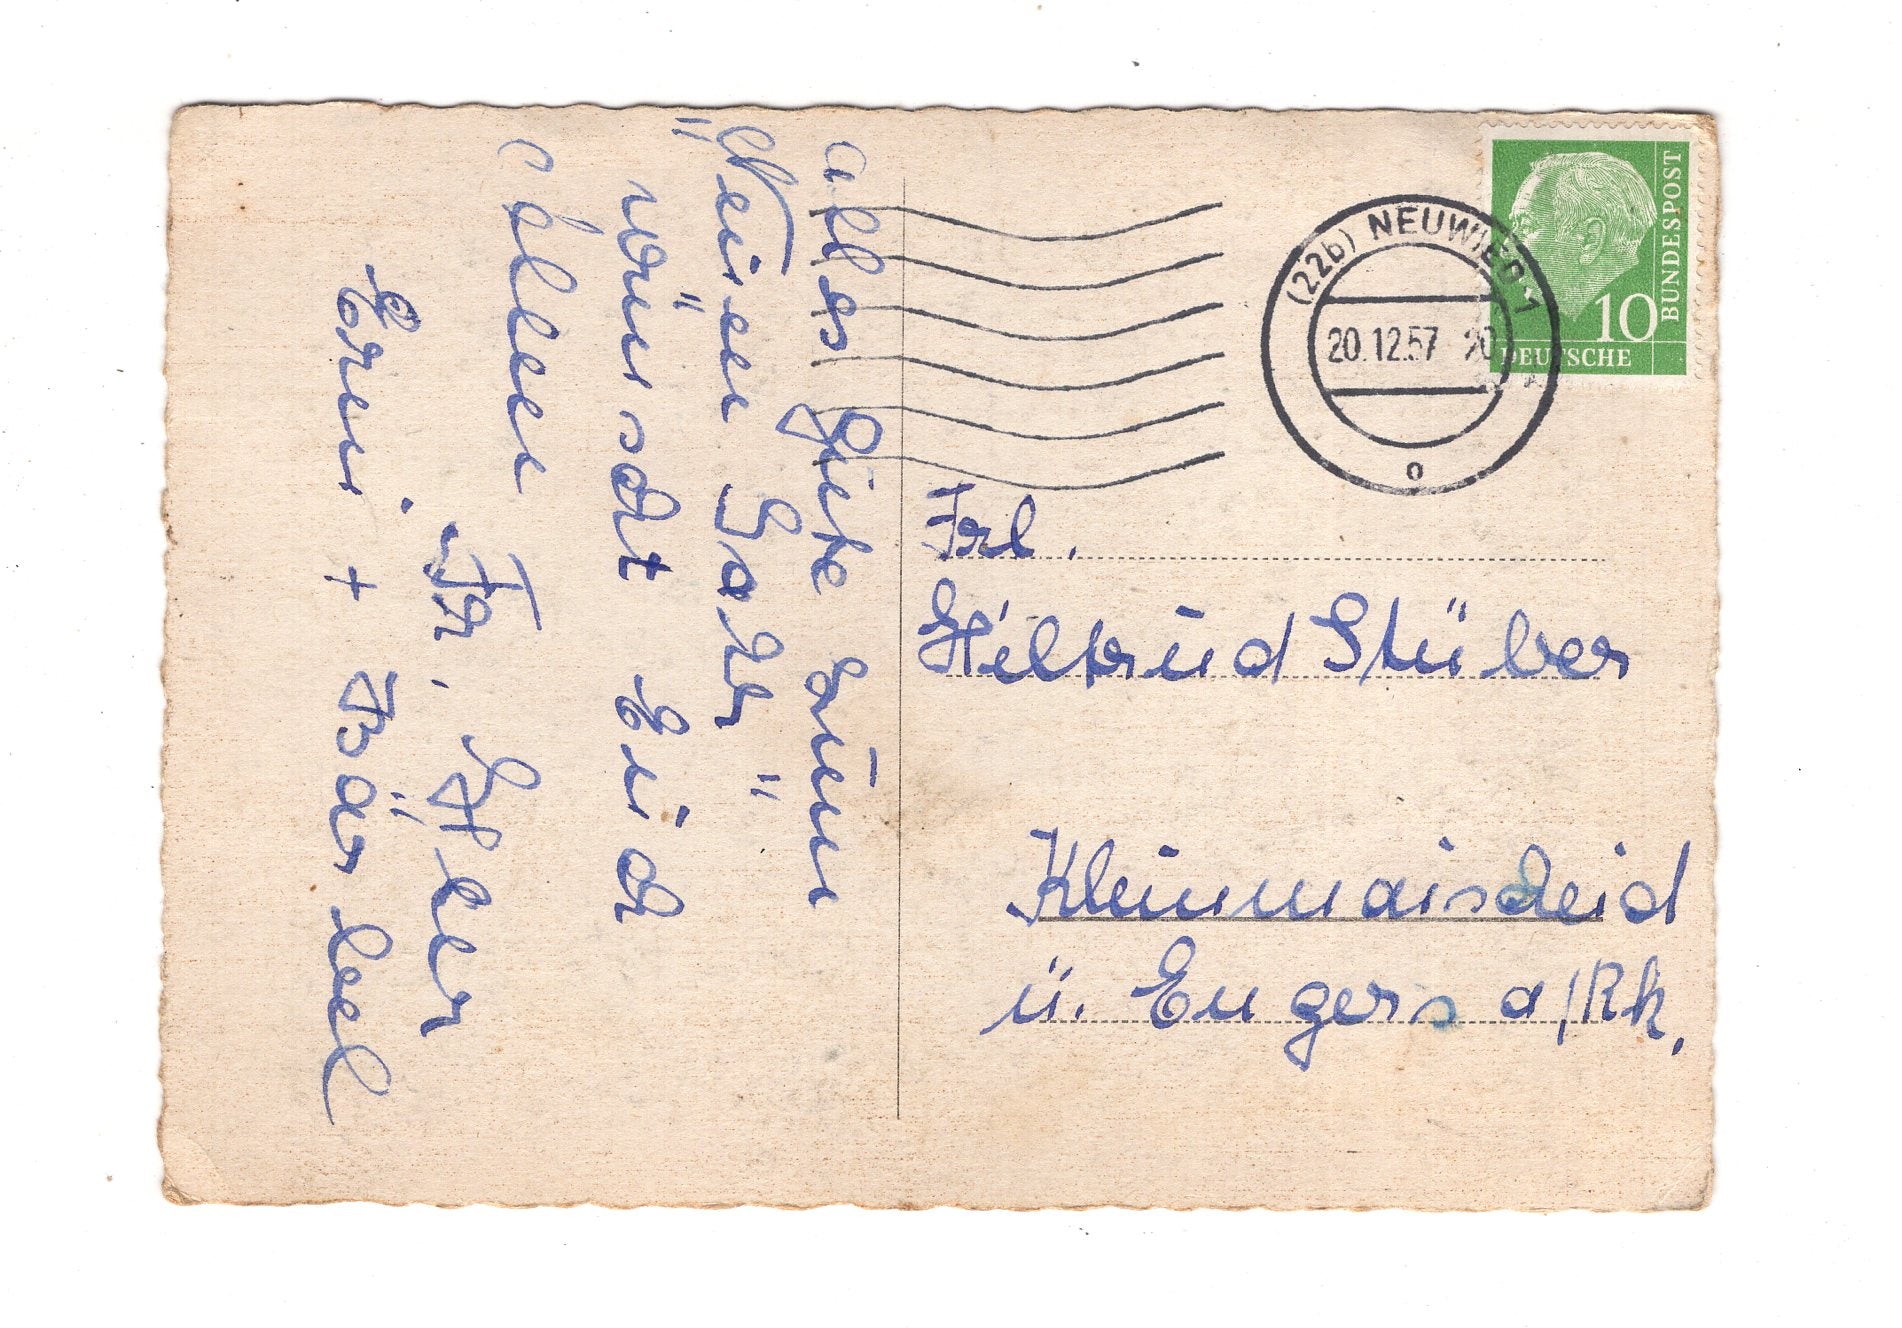 alles Gute zum
"Neuen Jahr"
wünscht Euch
allen
Fr. Heer
Erni + Bärbel
(22b) NEUWIED 1
20.12.57 20
o
10
DEUTSCHE
BUNDESPOST
Frl.
Hiltrud Stüber
Kleinmaischeid
ü. Engers a/Rh.